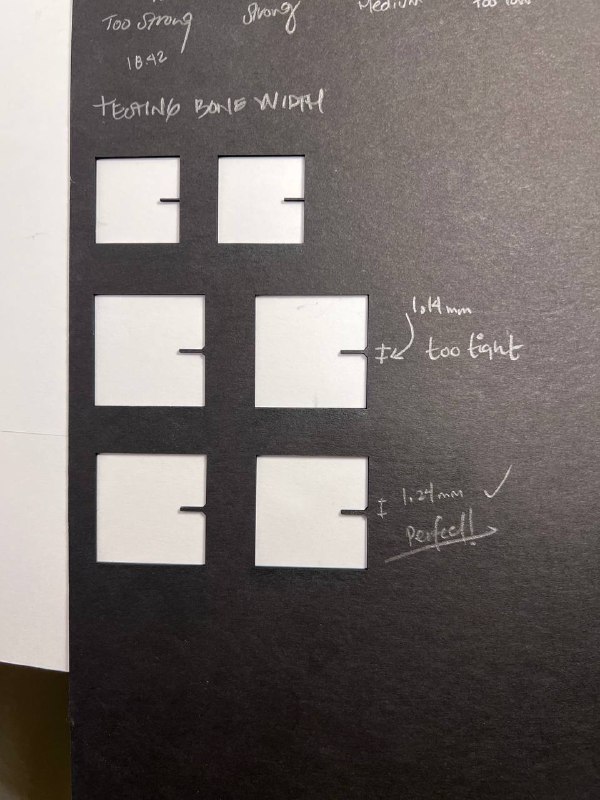 Too Strong
Strong
Medium
Too low
18.42
TESTING BONE WIDTH
1.14mm
too tight
1.24mm ✓
Perfect!